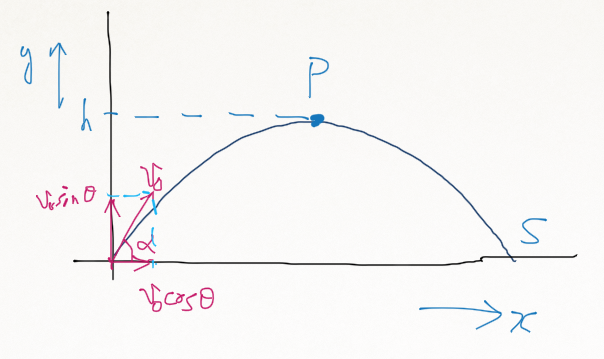 y
P
h
v₀
v₀sinθ
α
S
v₀cosθ
x